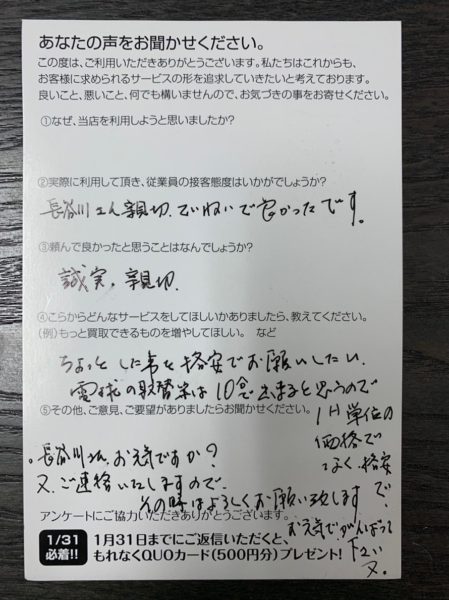 あなたの声をお聞かせください。
この度は、ご利用いただきありがとうございます。私たちはこれからも、
お客様に求められるサービスの形を追求していきたいと考えております。
良いこと、悪いこと、何でも構いませんので、お気づきの事をお寄せください。
①なぜ、当店を利用しようと思いましたか?
②実際に利用して頂き、従業員の接客態度はいかがでしょうか?
長谷川さん親切、ていねいで良かったです。
③頼んで良かったと思うことはなんでしょうか?
誠実、親切、
④こらからどんなサービスをしてほしいかありましたら、教えてください。
(例)もっと買取できるものを増やしてほしい。 など
ちょっとした事を格安でお願いしたい、
電球の取替等は10分で出来ると思うので
⑤その他、ご意見、ご要望がありましたらお聞かせください。
1H単位の
価格で
なく、格安
で、
長谷川さん、お元気ですか?
又、ご連絡いたしますので、
その時はよろしくお願い致します
お元気でがんばって
下さい
又。
アンケートにご協力いただきありがとうございます。
1/31
必着!!
1月31日までにご返信いただくと、
もれなくQUOカード(500円分)プレゼント!